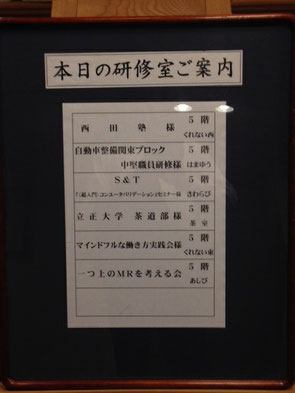 本日の研修室ご案内
西田塾様 5階
くれない西
自動車整備関東ブロック 5階
中堅職員研修様 はまゆう
S&T 5階
「〈超入門〉コンピュータバリデーション」セミナー様 さわらび
立正大学 茶道部様 5階
茶室
マインドフルな働き方実践会様 5階
くれない東
一つ上のMRを考える会 5階
あしび